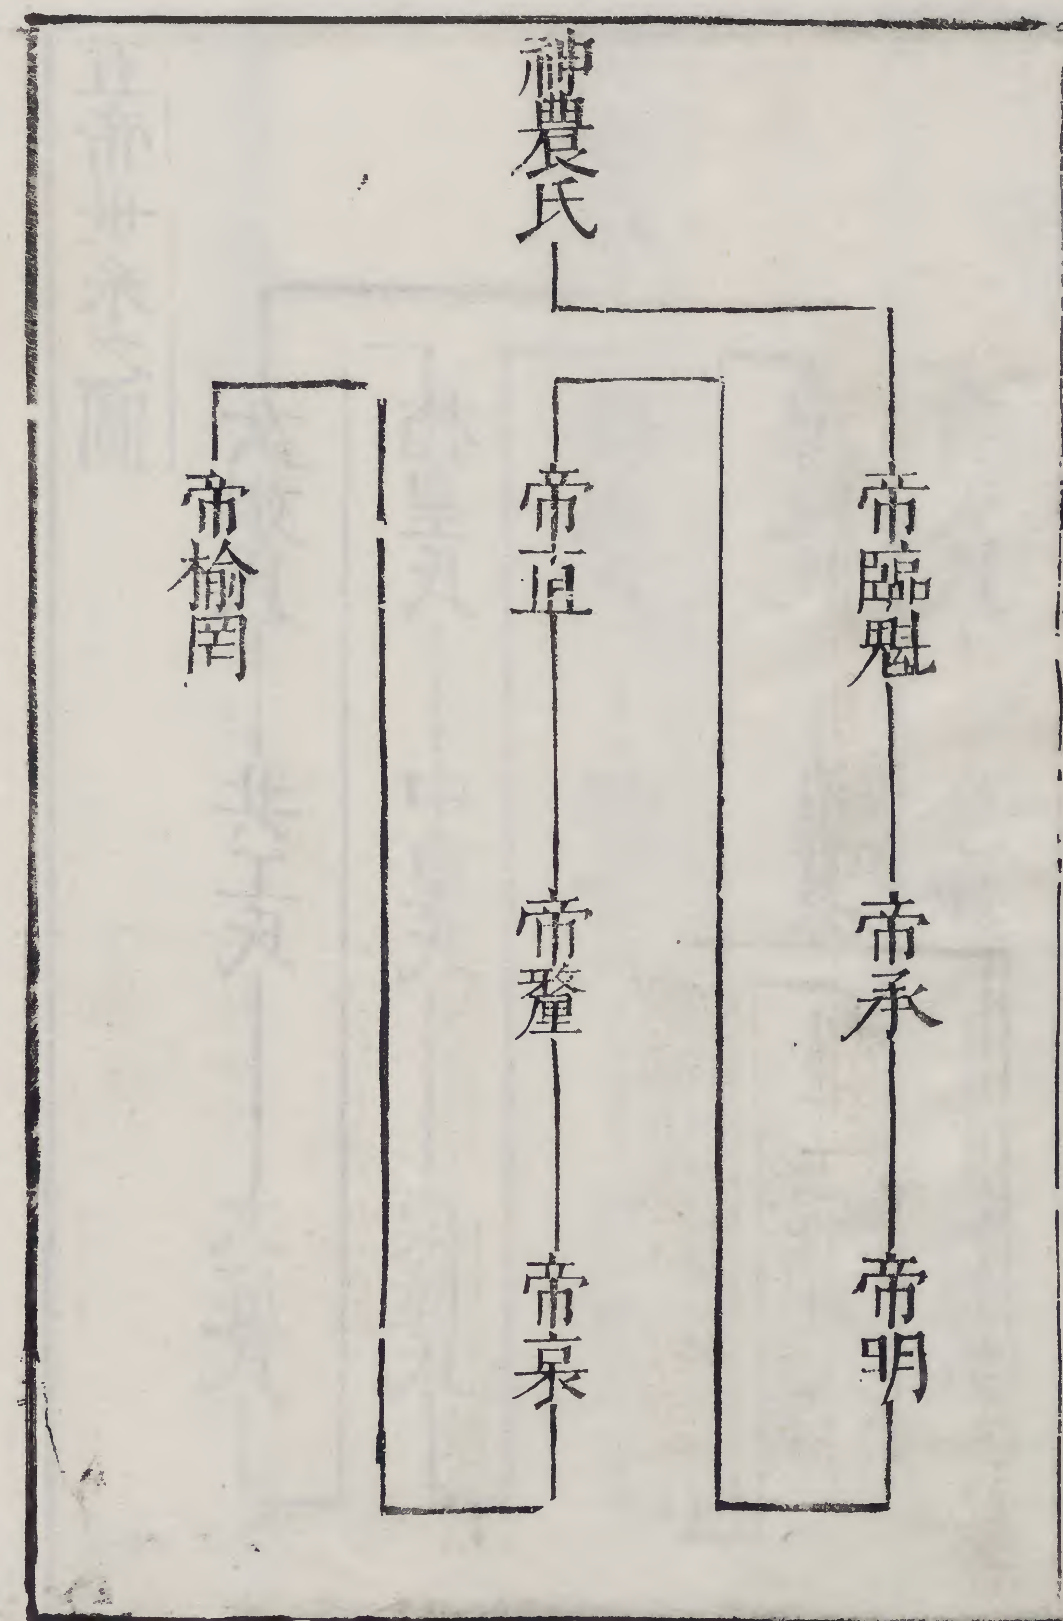 神農氏
帝臨魁
帝承
帝明
帝直
帝釐
帝哀
帝榆罔